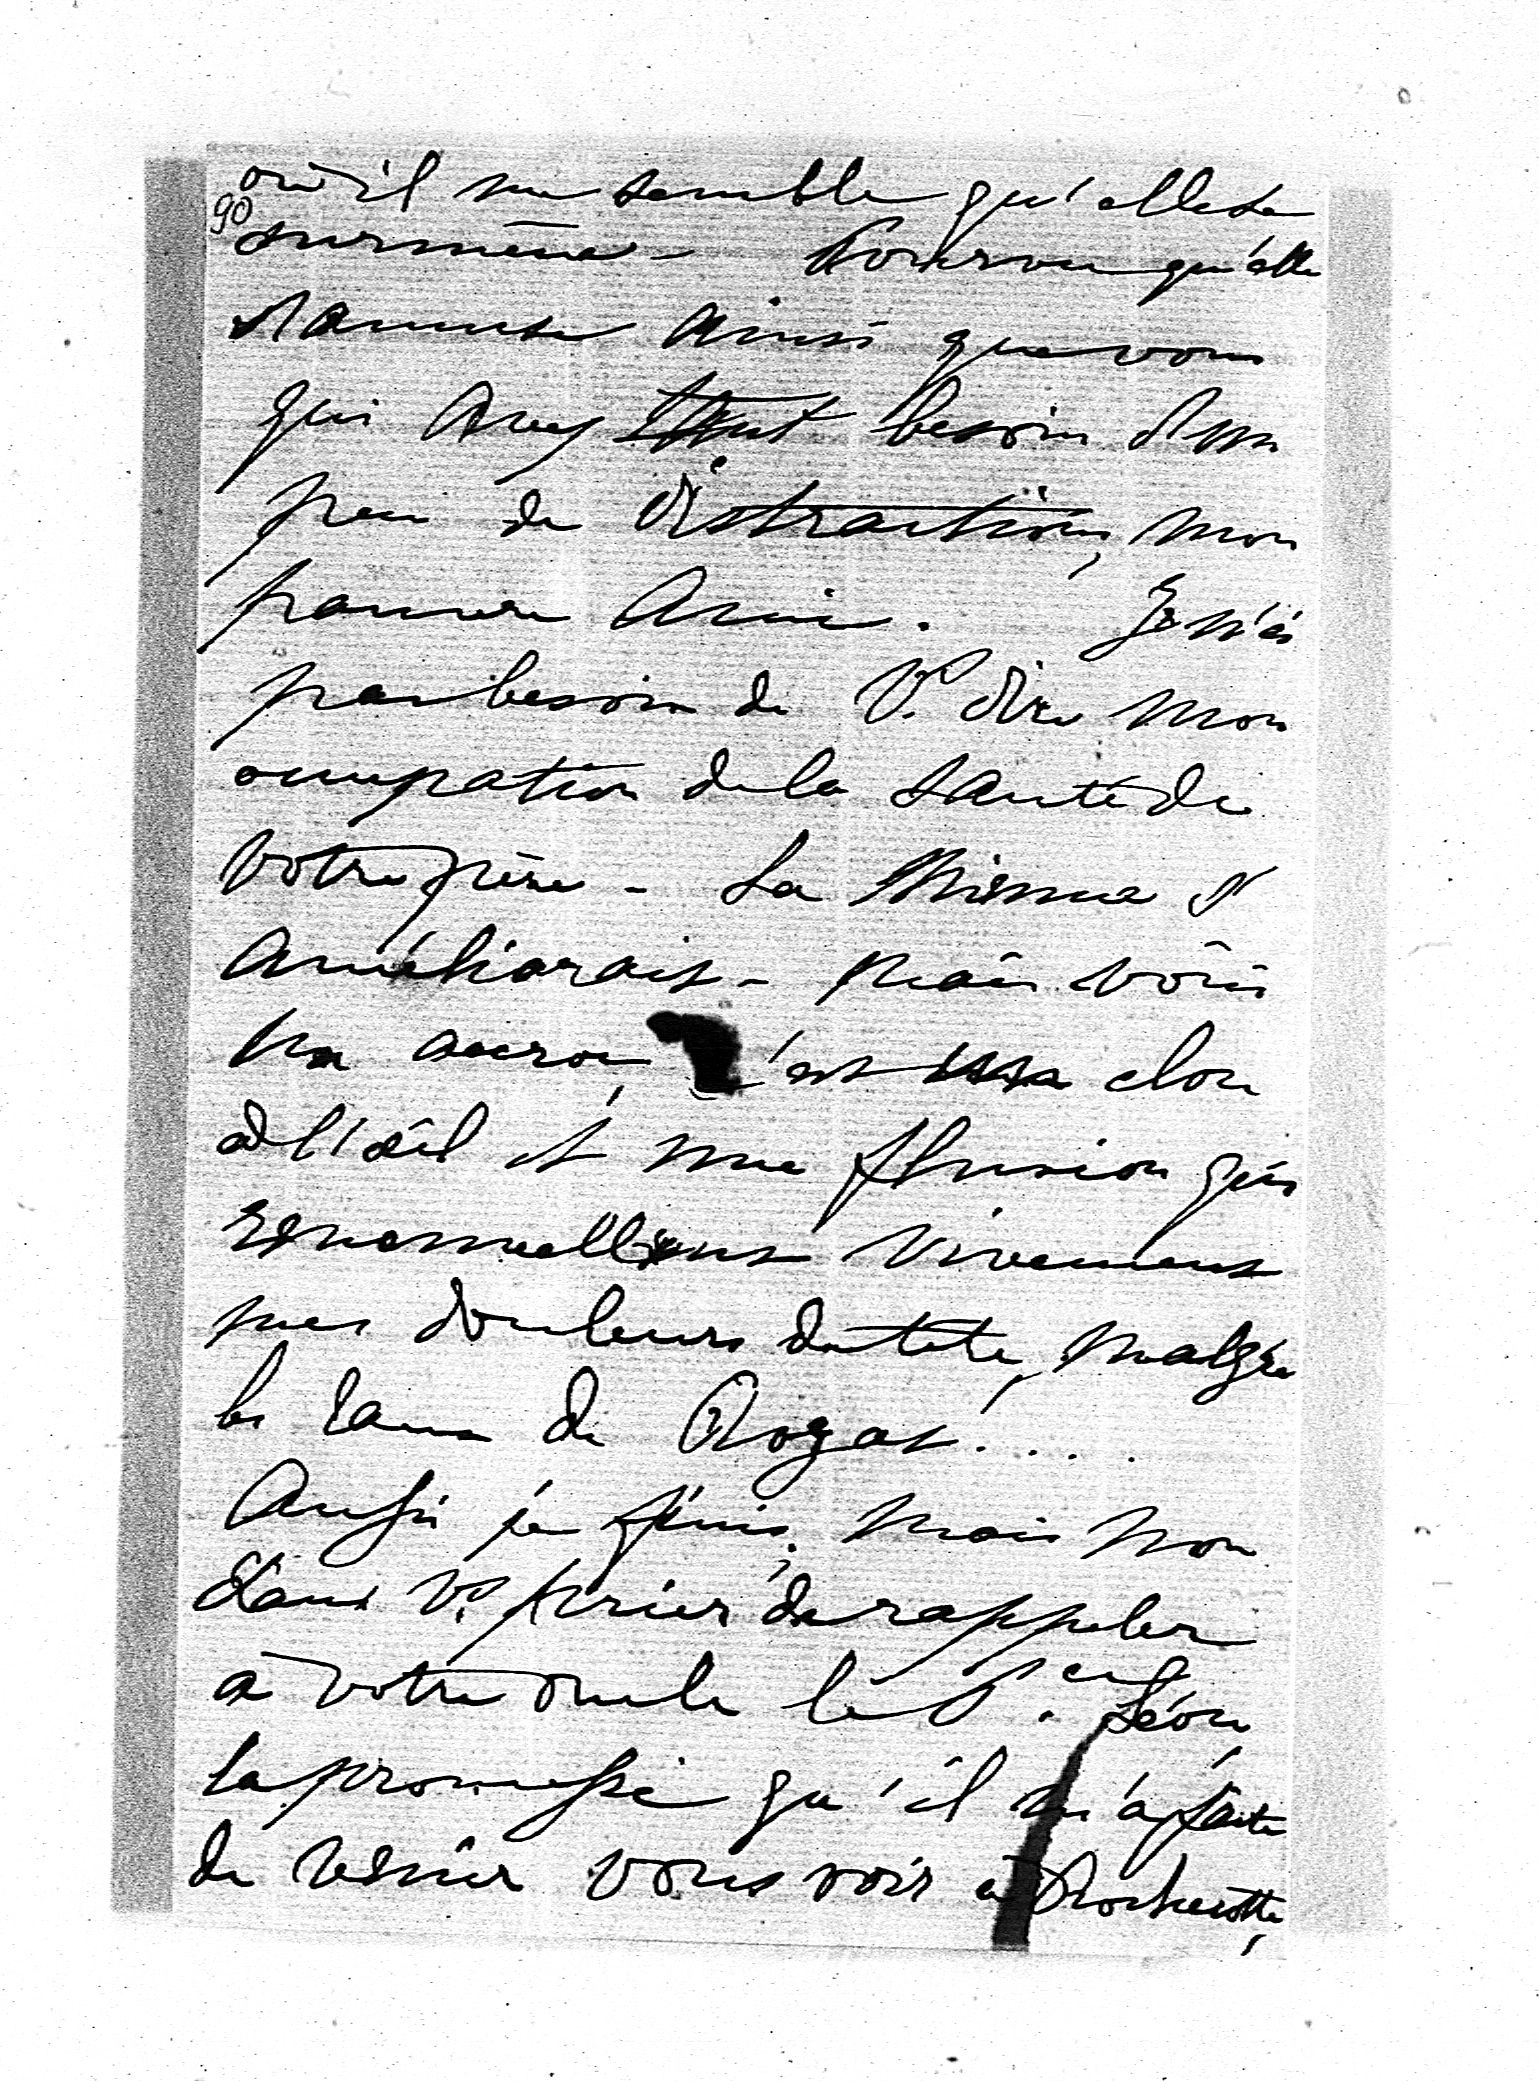 où il me semble qu'elle se
90
surmène - Pourvu qu'elle
s'amuse ainsi que vous
qui avez tant besoin d'un
peu de distractions, mon
pauvre Ami. Je n'ai
pas besoin de V.s dire mon
occupation de la santé de
votre père - La Mienne s'
améliorait - Mais voici
un accroc, c'est un clou
à l'œil et une fluxion qui
renouvellent vivement
mes douleurs de tête, malgré
les Eaux de Royat....
Aussi je finis, mais non
sans V.s prier de rappeler
à votre oncle le P.ce Léon,
la promesse qu'il m'a faite
de venir vous voir à Rochecotte,